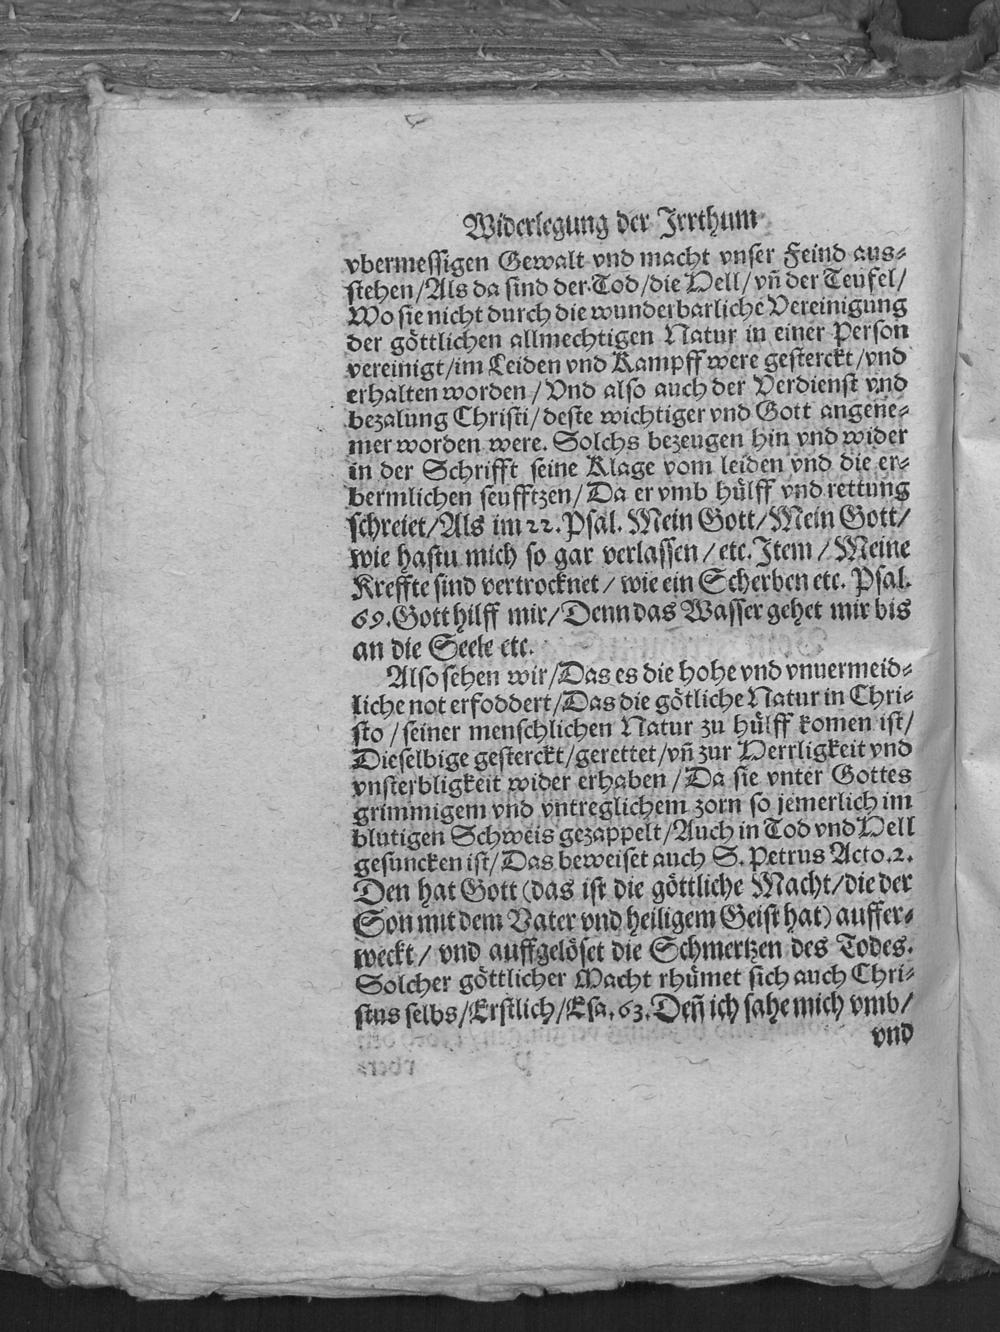 Widerlegung der Jrrthum
vbermessigen Gewalt vnd macht vnser Feind aus-
stehen/Als da sind der Tod/die Hell/vñ der Teufel/
Wo sie nicht durch die wunderbarliche Vereinigung
der göttlichen allmechtigen Natur in einer Person
vereinigt/im Leiden vnd Kampff were gesterckt/vnd
erhalten worden/Vnd also auch der Verdienst vnd
bezalung Christi/deste wichtiger vnd Gott angene-
mer worden were. Solchs bezeugen hin vnd wider
in der Schrifft seine Klage vom leiden vnd die er-
bermlichen seufftzen/Da er vmb hülff vnd rettung
schreiet/Als im 22.Psal. Mein Gott/Mein Gott/
wie hastu mich so gar verlassen/etc.Jtem/Meine
Kreffte sind vertrocknet/wie ein Scherben etc. Psal.
69.Gott hilff mir/Denn das Wasser gehet mir bis
an die Seele etc.
Also sehen wir/Das es die hohe vnd vnuermeid-
liche not erfoddert/Das die götliche Natur in Chri-
sto/seiner menschlichen Natur zu hülff komen ist/
Dieselbige gesterckt/gerettet/vñ zur Herrligkeit vnd
vnsterbligkeit wider erhaben/Da sie vnter Gottes
grimmigem vnd vntreglichem zorn so jemerlich im
blutigen Schweis gezappelt/Auch in Tod vnd Hell
gesuncken ist/Das beweiset auch S. Petrus Acto.2.
Den hat Gott (das ist die göttliche Macht/die der
Son mit dem Vater vnd heiligem Geist hat) auffer-
weckt/ vnd auffgelöset die Schmertzen des Todes.
Solcher göttlicher Macht rhümet sich auch Chri-
stus selbs/Erstlich/Esa.63.Deñ ich sahe mich vmb/
vnd